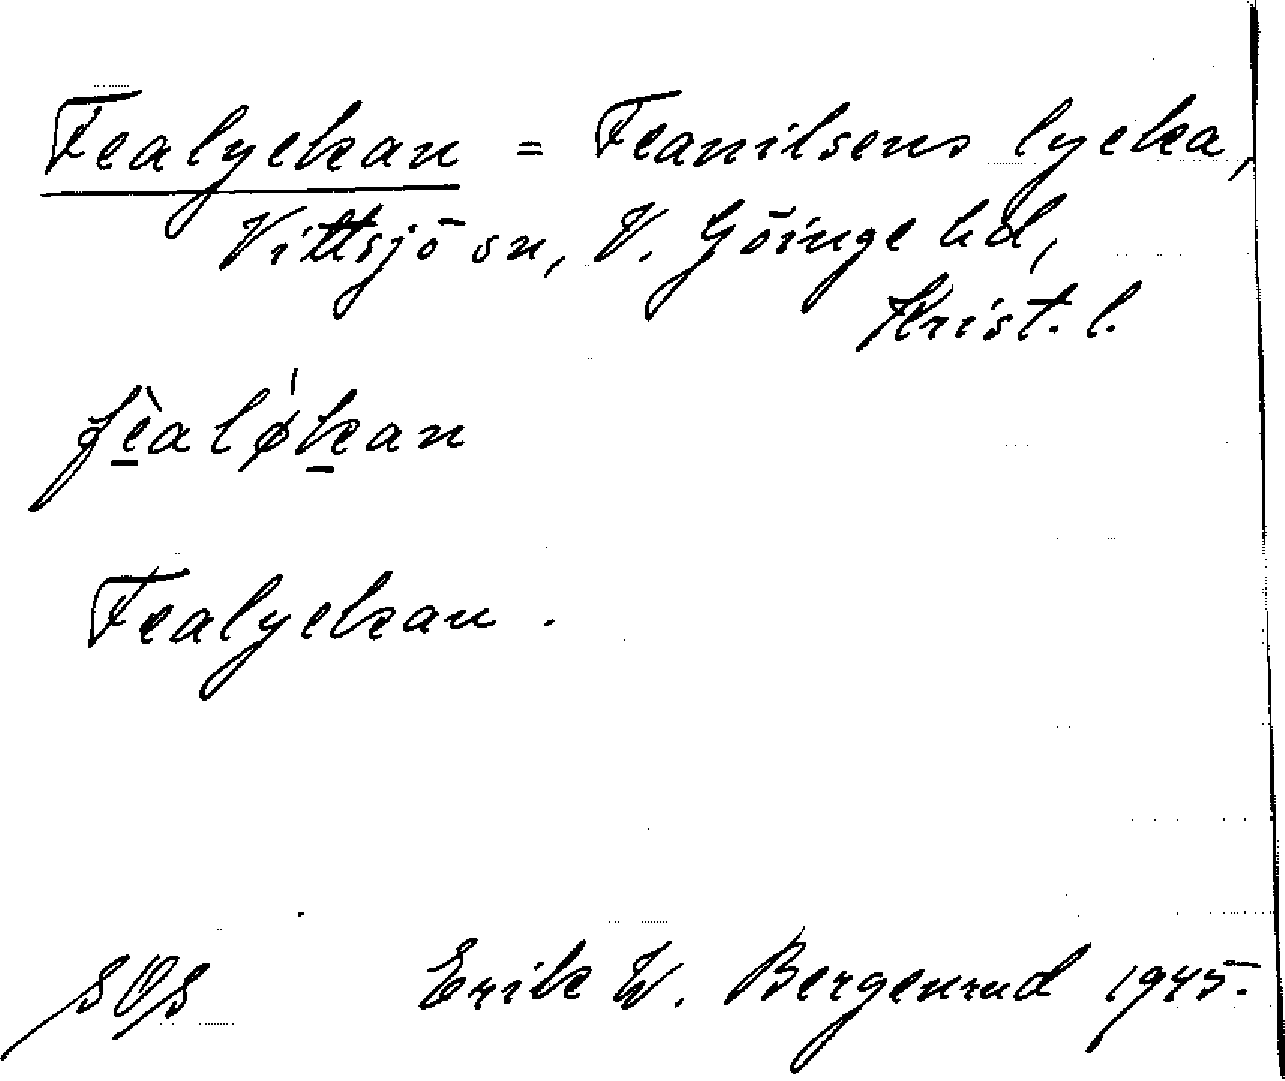 Fealyckan = Feanilsens lycka,
Vittsjö sn, V. Göinge hd,
Krist. l.
fèalǿkan
Fealyckan.
SOS Erik W. Bergenrud 1945.